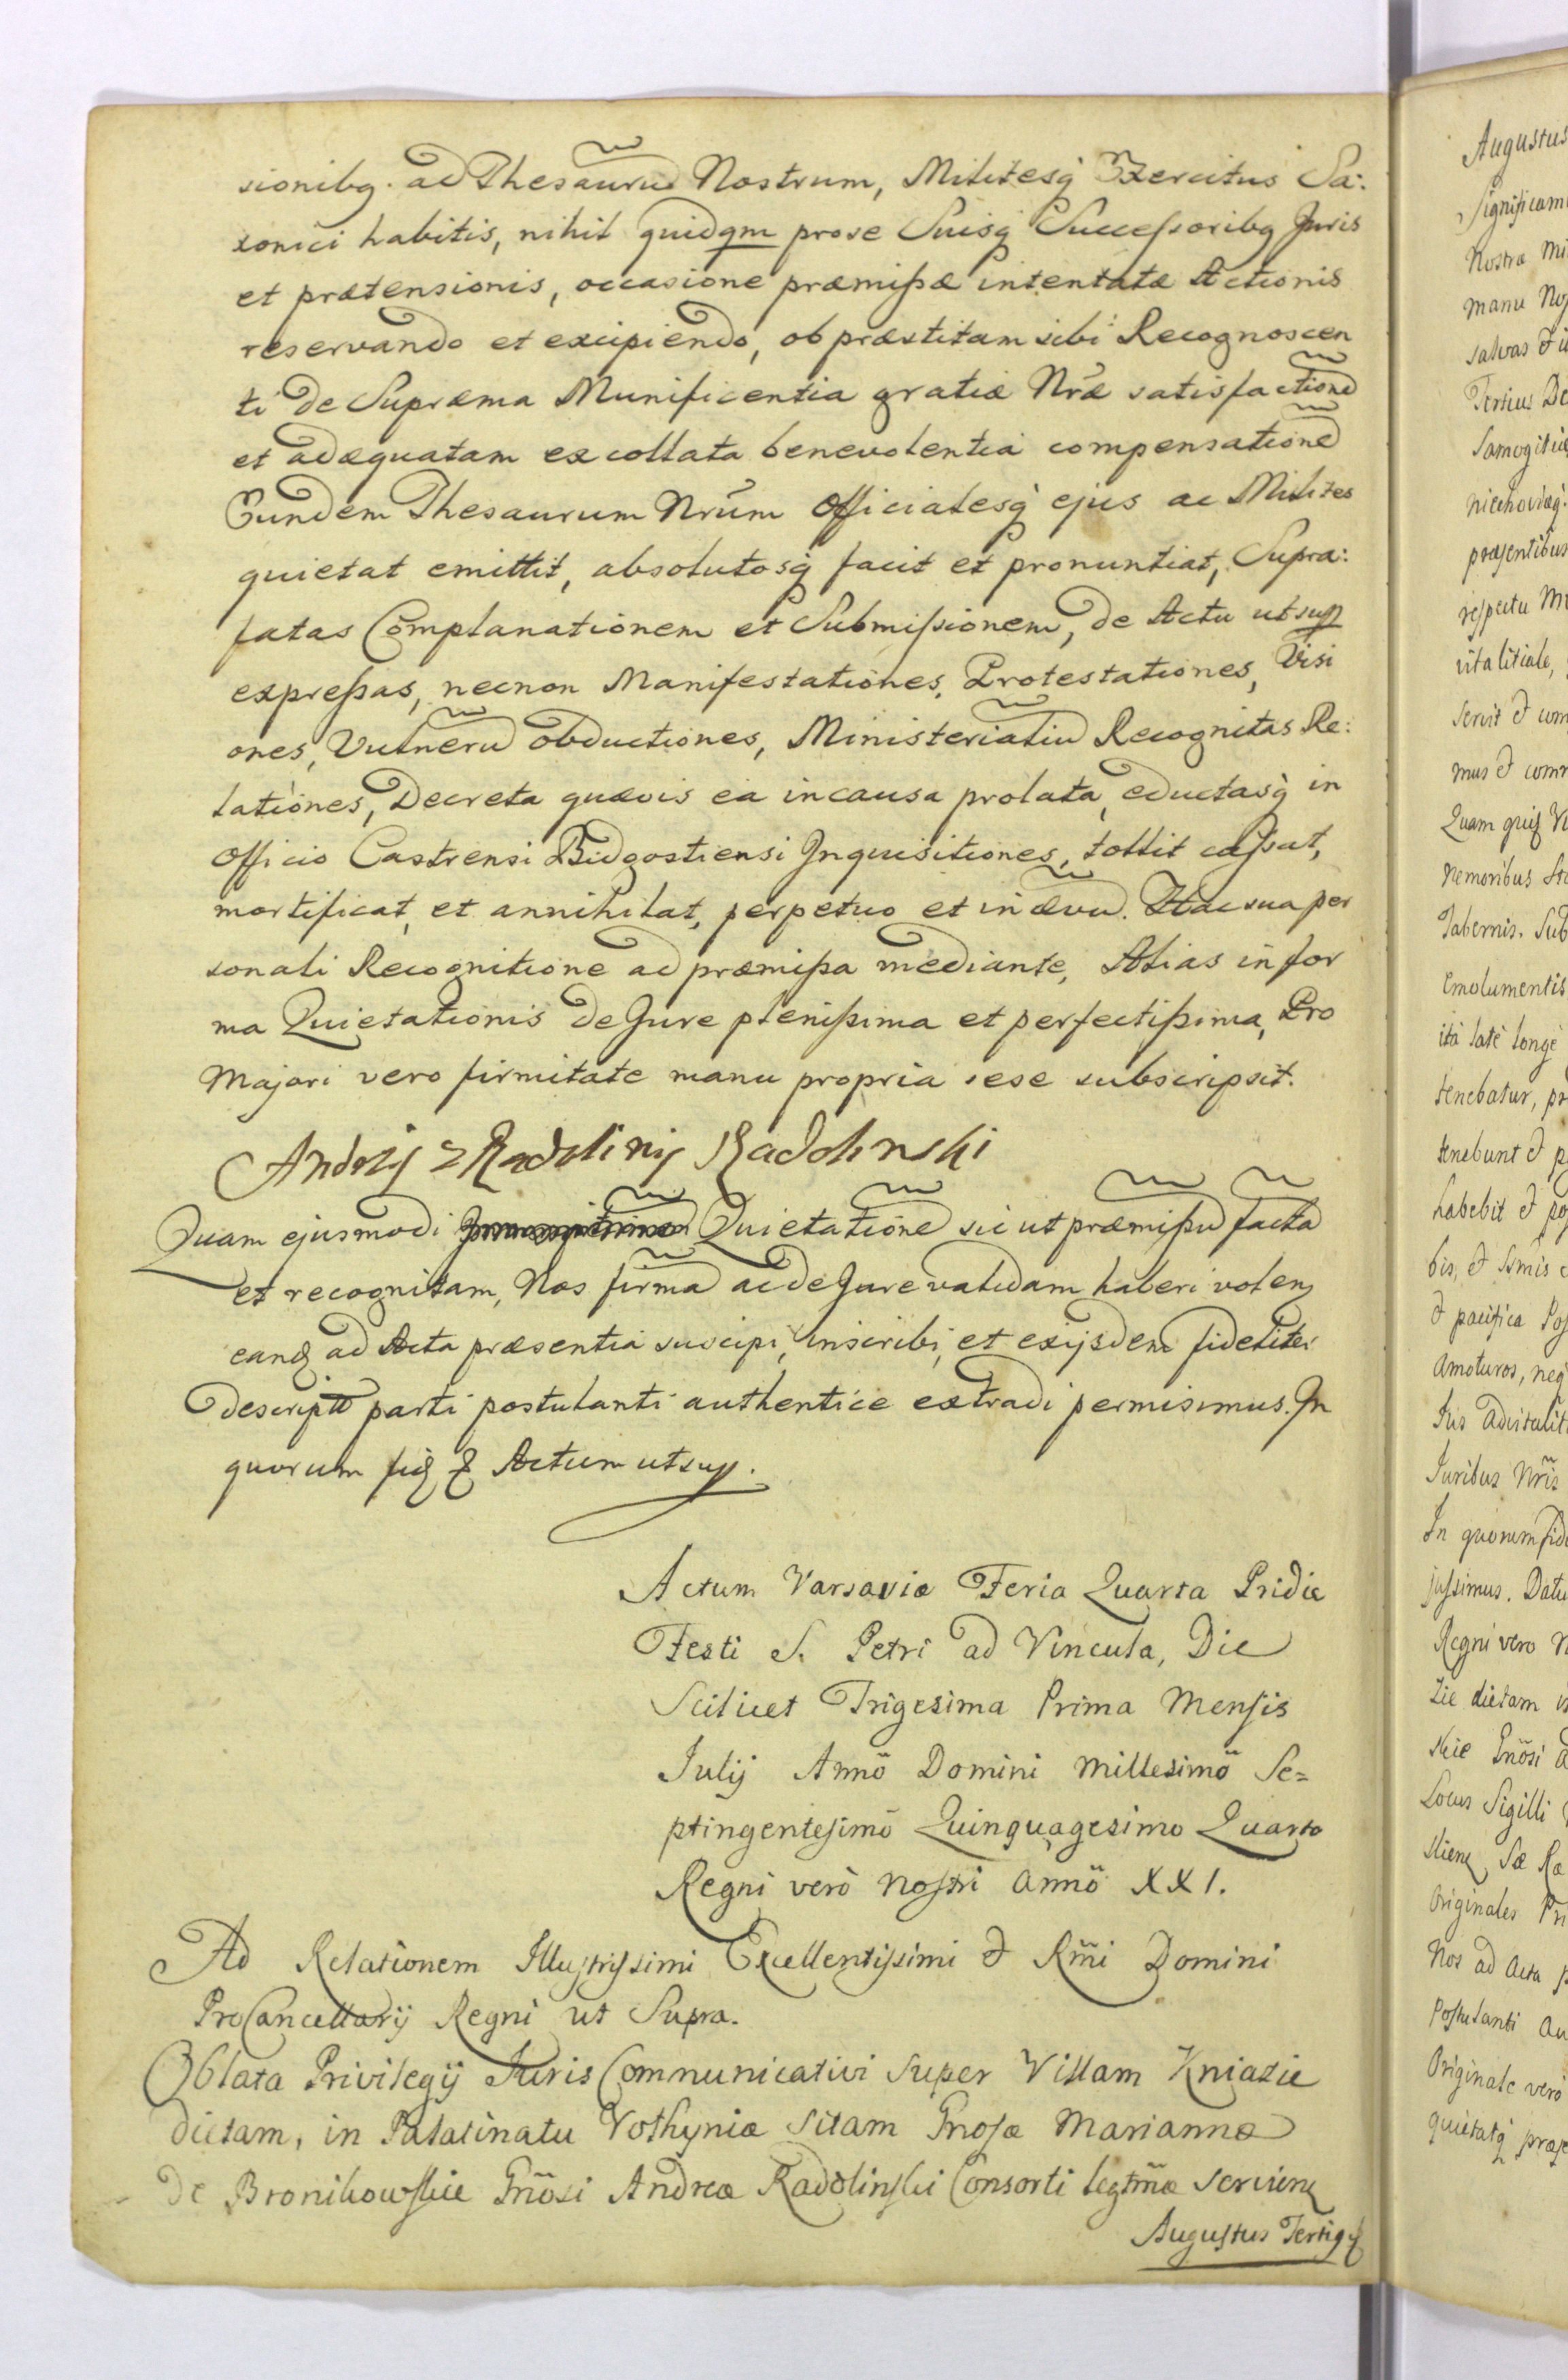 sionibq. ad Thesauru͠ Nostrum, Militesq̀ Exercitus Sa:
xonici habitis, nihil quidqm prose Suisq̀ Successoribq Juris
et prætensionis, occasione præmißæ intentatæ Actionis
reservando et excipiendo, ob præstitam sibi Recognoscen
ti de Supræma Munificentia gratiæ Nr̃æ satisfactione͠
et adæquatam ex collata benevolentia compensatione͠
Eundem Thesaurum Nrũm Officialesq̀ ejus ac Milites
quietat emittit, absolutosq̀ facit et pronuntiat, Supra:
fatas Complanationem et Submißionem, de Actu utsup
expreßas, necnon Manifestationes, Protestationes, Visi
ones, Vulneru͠ obductiones, Ministerialiu͠ Recognitas Re:
lationes, Decreta quævis eà incausa prolata, eductasq̀ in
Officio Castrensi Bidgostiensi Inquisitiones, tollit caßat,
mortificat, et annihilat, perpetuo et in ævu͠. Hac sua per
sonali Recognitione ad præmißa mediante, Alias in for
ma Quietationis de Jure plenißima et perfectißima, Pro
Majori vero firmitate manu propria sese subscripsit.
Andrzy z Radolina Radolinski
Quam ejusmodi Quietatione͠ sic ut præmißu͠ facta͠
et recognitam, Nos firma͠ ac de Jure validam haberi volenς
eandς ad Acta præsentia suscipi, inscribi, et exijsdem fideliter
descriptt parti postulanti authentice extradi permisimus. In
quorum fidς ꝛ Actum utsup.
Actum Varsaviæ Feria Quarta Pridie
Festi S. Petri ad Vincula, Die
Scilicet Trigesima Prima Mensis
Julij Annö Domini Millesimö Se=
ptingentesimō Quinquagesimo Quarto
Regni verò Nostri Annö XXI.
Ad Relationem Illustrissimi Excellentissimi & Rm̃i Domini
ProCancellarij Regni ut Supra.
Oblata Privilegij Juris Communicativi Super Villam Kniazie
dictam, in Palatinatu Volhyniæ Sitam Gnosæ Mariannæ
De Bronikowskie Gnõsi Andreæ Radolinski Consorti legtm̃æ Servienς
Augustus Tertiqς
Augustus
Significam
Nostra
manu
salvas
Tertius
Samogitiæ
præsentibus
vitalitiale,
mus & com
Nemoribus
Tabernis. Sub
Emolumentis
ità latè longè
tenebatur, pr
tenebunt & p
habebit & po
bis, &
& pacifica Pos
amoturos, neq
Juribus Nr̃is
In quorum fid
jussimus. Datu
Regni vero N
dictam
Gnösi
Locus Sigilli
Originales Pri
Nos ad Acta p
Postulanti au
Originale verò